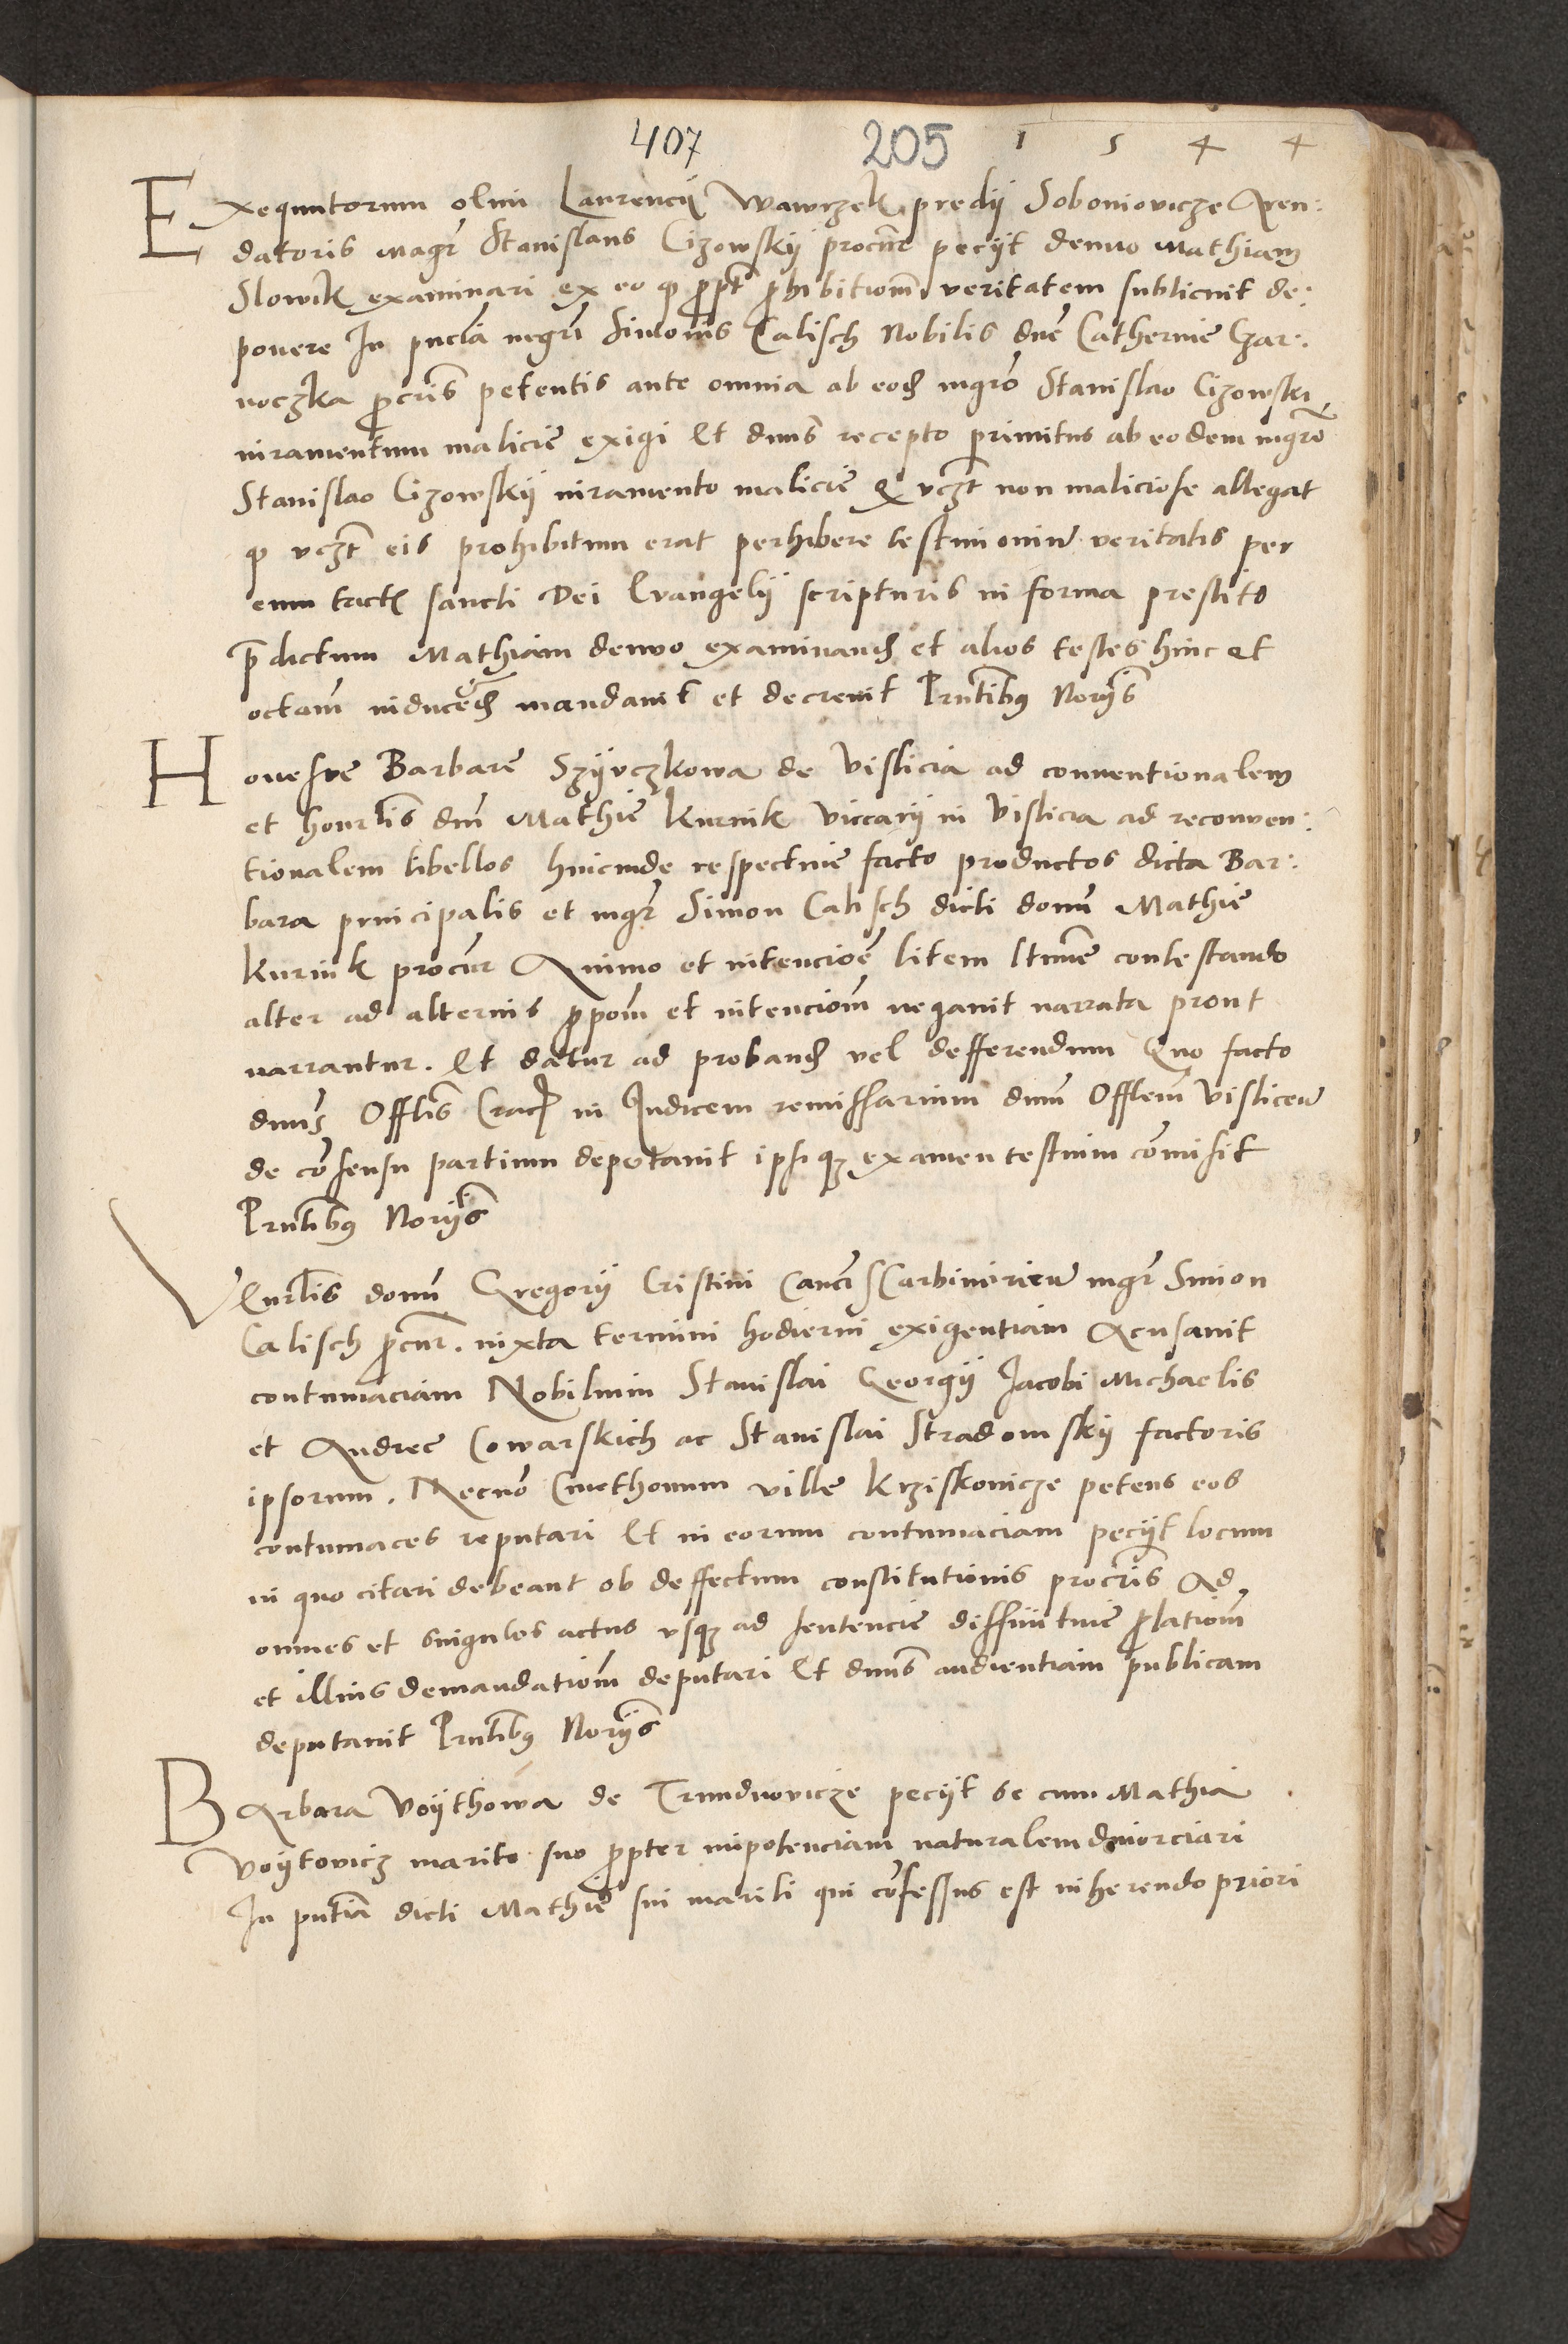 407 205 1 5 4 4
Exequutorum olim Laurencij Wawrzek predij Soboniovicze Aren:
datoris magr Stanislaus Cizowskij procur pecijt denuo Mathiam
Slowik examinari ex eo q propt prohibitiom veritatem subticuit de:
ponere In pncia mgri Simonis Calisch Nobilis dne Catherine Czar:
noczka procris petentis ante omnia ab eod mgro Stanislao Cizowski
iuramentum malicie exigi Et dnus recepto primitus ab eodem mgro
Stanislao Cizowskij iuramento malicie q vczt non maliciose allegat
q vczt eis prohibitum erat perhibere testimonium veritatis per
eum tactis sancti Dei Evangelij scripturis in forma prestito
predictum Mathiam denuo examinand et alios testes hinc Et
octam inducend mandavit et decrevit Prntibus Norijs
Honeste Barbare Szijvczkowa de Vislicia ad conventionalem
et honrlis dni Mathie Kurnik viccarij in Vislicia ad reconven:
tionalem libellos hincinde respective facto productos dicta Bar:
bara principalis et mgr Simon Calisch dicti domi Mathie
Kurnik procur Animo et intencioe litem ltime contestando
alter ad alterius propom et intenciom negavit narrata prout
narrantur. Et datur ad proband vel defferendum Quo facto
dnus Offlis Crac in Judicem remissarium dnum Offlem Vislicen
de consensu partium deputavit ipsiq examen testium comisit
Prntibus Norijs
Venrlis domi Gregorij Cristini Canci Scarbimirien mgr Simon
Calisch procur. iuxta termini hodierni exigentiam Acusavit
contumaciam Nobilium Stanislai Georgij Jacobi Michaelis
et Andree Cowarskich ac Stanislai Stradomskij factoris
ipsorum. Necno Cmethonum ville Krziskovicze petens eos
contumaces reputari Et in eorum contumaciam pecijt locum
in quo citari debeant ob deffectum constitutionis procris Ad
omnes et singulos actus usq ad sentencie diffinitive prolatiom
et illius demandatiom deputari Et dnus audientiam publicam
deputavit Prntibus Norijs
Barbara Voijthowa de Trundnovicze pecijt se cum Mathia
Voijtovicz marito suo propter impotenciam naturalem divorciari
In pntia dicti Mathie sui mariti qui confessus est inherendo priori